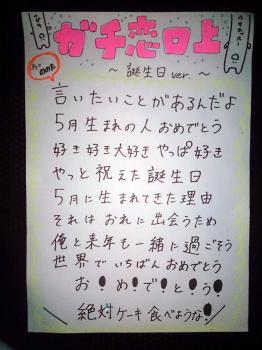 ガチ恋口上
〜誕生日ver.〜
言いたいことがあるんだよ
5月生まれの人おめでとう
好き好き大好きやっぱ好き
やっと祝えた誕生日
5月に生まれてきた理由
それはおれに出会うため
俺と来年も一緒に過ごそう
世界でいちばんおめでとう
お！め！で！と！う！
絶対ケーキ食べような！